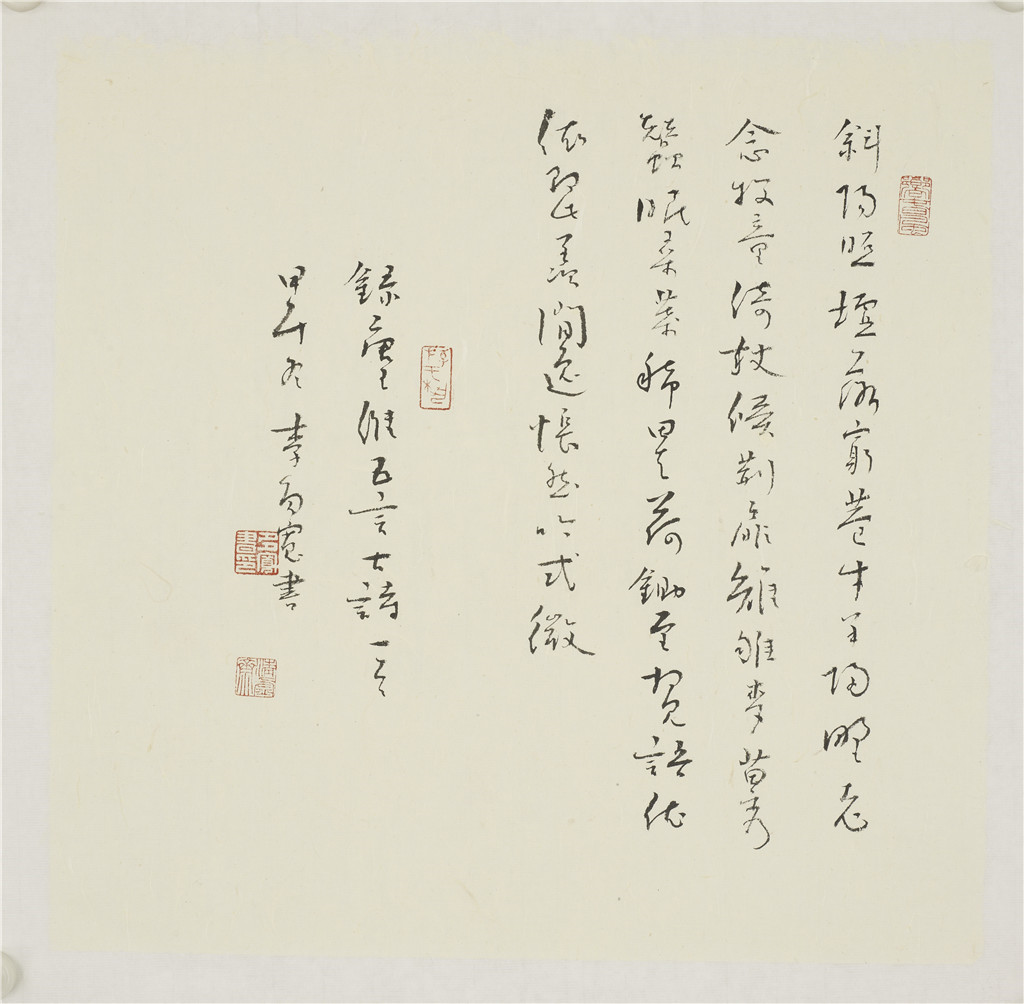 斜陽照墟落窮巷牛羊歸野老
念牧童倚杖候荊扉雉雊麥苗秀
蠶眠桑葉稀田夫荷鋤至相見語依
依即此羨閒逸悵然吟式微
錄唐王維五言古詩一首
甲午冬李百寬書